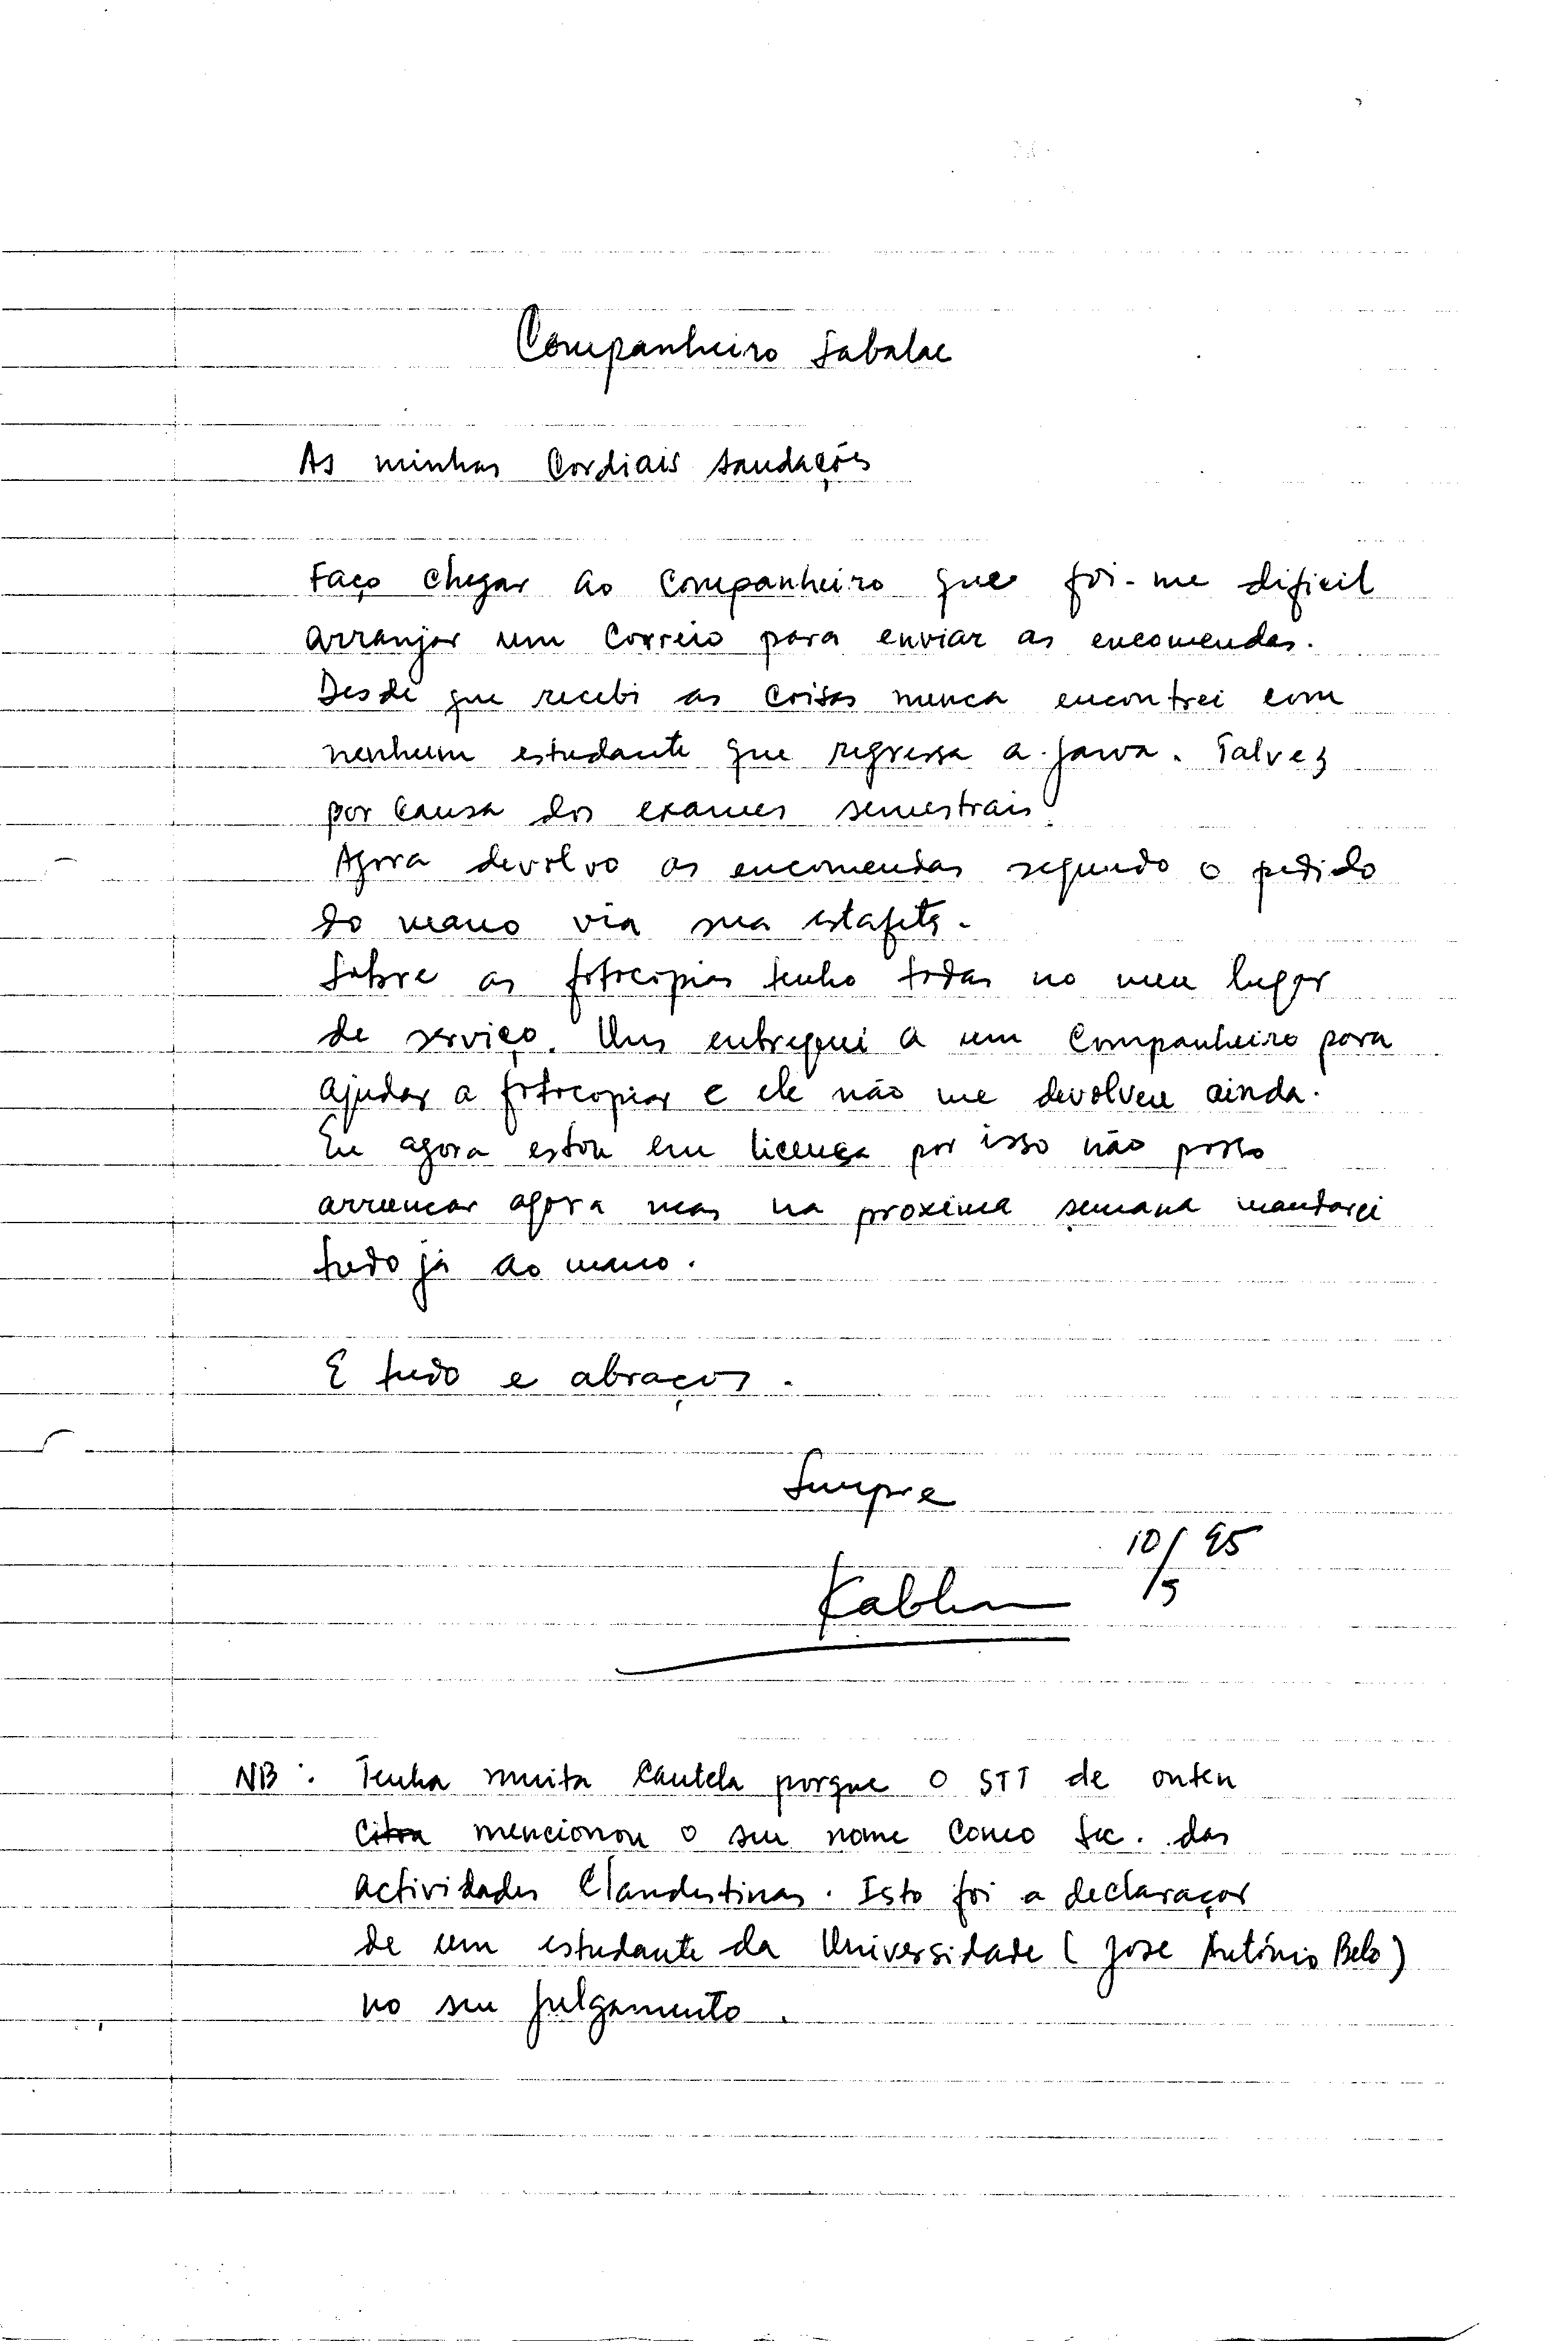 Companheiro Sabalae
As minhas Cordiais saudações
Faço chegar ao Companheiro que foi-me dificil
arranjar um Correio para enviar as encomendas.
Desde que recebi as Coisas nunca encontrei com
nenhum estudante que regressa a Jawa. Talvez
por Causa dos exames semestrais.
Agora devolvo as encomendas segundo o pedido
do mano via sua estafeta.
Sobre as fotocopias tenho todas no meu lugar
de serviço. Uns entreguei a um Companheiro para
ajudar a fotocopiar e ele não me devolveu ainda.
Eu agora estou em licença por isso não posso
arrancar agora mas na proxima semana mandarei
tudo já ao mano.
E tudo e abraços.
Sempre
10/5 95
NB: Tenha muita Cautela porque o STT de onten
mencionou o seu nome Como Sec. das
actividades Clandestinas. Isto foi a declaraçao
de um estudante da Universidade (Jose António Belo)
no seu julgamento.